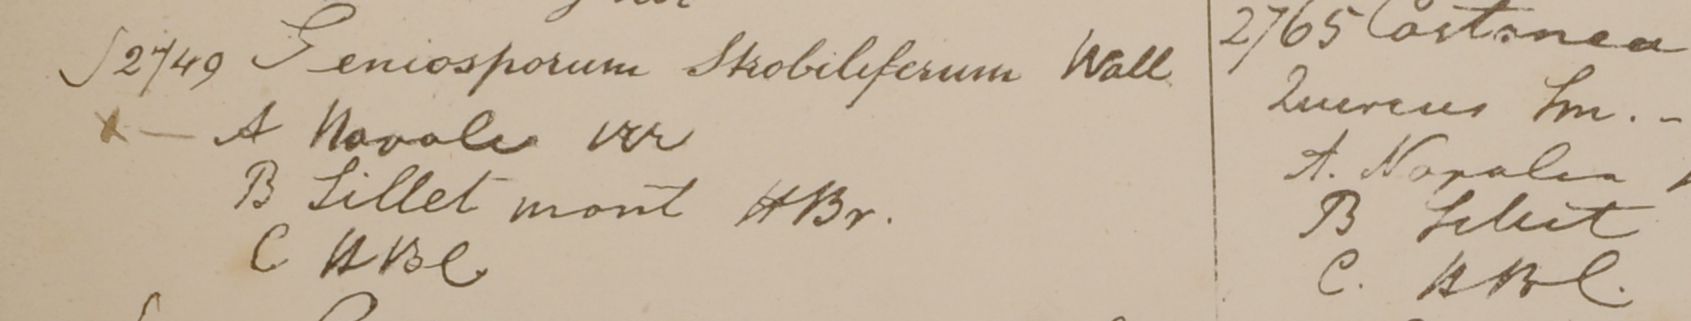 2749 Geniosporum Strobiliferum Wall
x — A Navale
B Sillet mont HBr.
C HBC
2765 Castanea
Quercus Sm. -
A. Napalia
B Sillet
C. HBC.